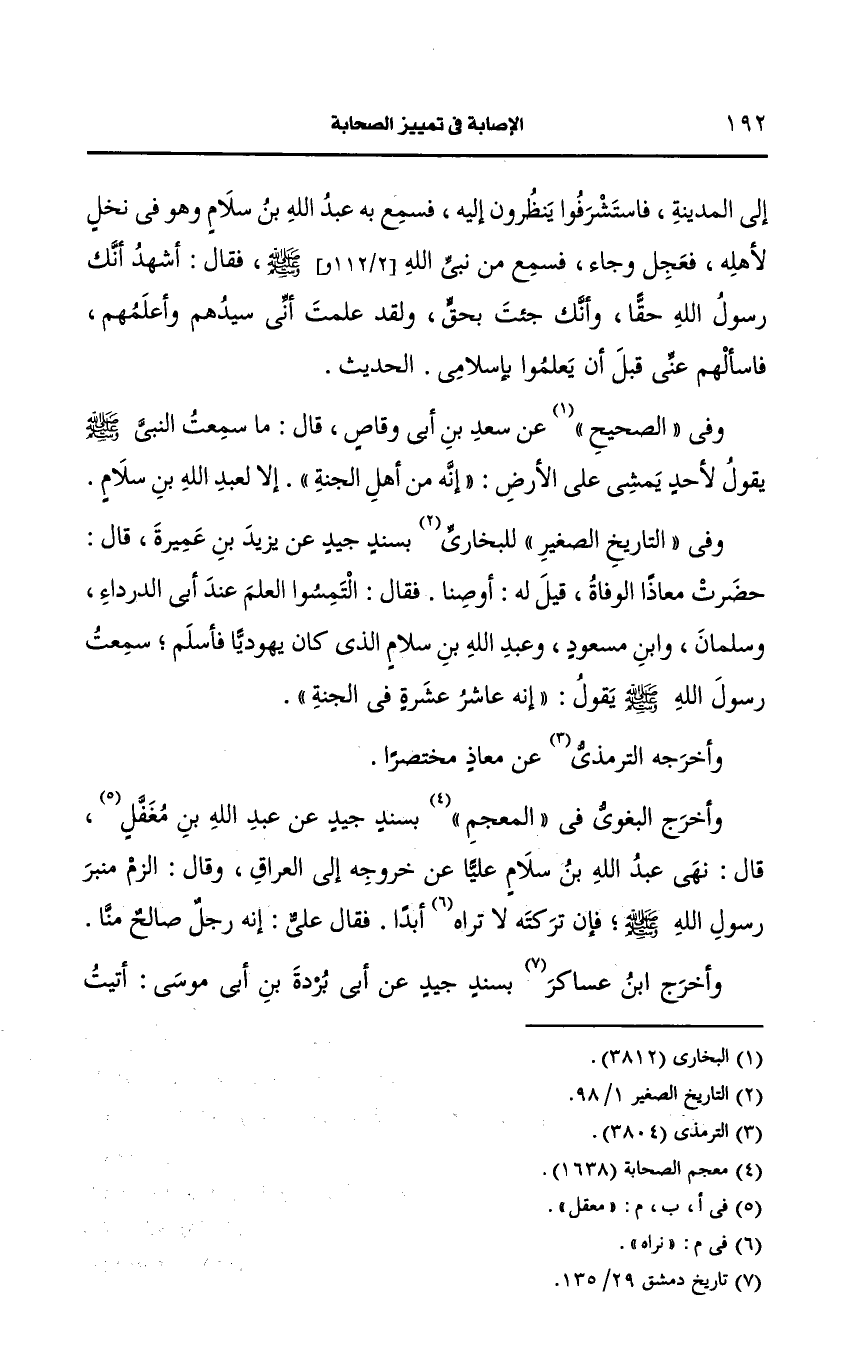 ١٩٢ الإصابة فى تمييز الصحابة
إلى المدينةِ ، فاستَشْرَفُوا يَنظُرون إليه ، فسمِع به عبدُ اللهِ بنُ سلَامٍ وهو فى نخلٍ
لأهلِه ، فعَجِل وجاء ، فسمِع من نبىِّ اللهِ [١١٢/٢و] ﷺ ، فقال : أشهدُ أنَّك
رسولُ اللهِ حقًّا ، وأنَّك جئتَ بحقٍّ ، ولقد علمتَ أنِّى سيدُهم وأعلَمُهم ،
فاسألْهم عنِّى قبلَ أن يَعلمُوا بإسلامِى . الحديث .
وفى « الصحيحِ »(١) عن سعدِ بنِ أبى وقاصٍ ، قال : ما سمِعتُ النبىَّ ﷺ
يقولُ لأحدٍ يَمشِى على الأرضِ : « إنَّه من أهلِ الجنةِ » . إلا لعبدِ اللهِ بنِ سلَامٍ .
وفى « التاريخِ الصغيرِ » للبخارىِّ(٢) بسندٍ جيدٍ عن يزيدَ بنِ عَمِيرةَ ، قال :
حضَرتْ معاذًا الوفاةُ ، قيلَ له : أوصِنا . فقال : الْتَمِسُوا العلمَ عندَ أبى الدرداءِ ،
وسلمانَ ، وابنِ مسعودٍ ، وعبدِ اللهِ بنِ سلامٍ الذى كان يهوديًّا فأسلَم ؛ سمِعتُ
رسولَ اللهِ ﷺ يَقولُ : « إنه عاشرُ عشَرةٍ فى الجنةِ » .
وأخرَجه الترمذىُّ(٣) عن معاذٍ مختصرًا .
وأخرَج البغوىُّ فى « المعجمِ »(٤) بسندٍ جيدٍ عن عبدِ اللهِ بنِ مُغَفَّلٍ(٥) ،
قال : نهَى عبدُ اللهِ بنُ سلَامٍ عليًّا عن خروجِه إلى العراقِ ، وقال : الزمْ منبرَ
رسولِ اللهِ ﷺ ؛ فإن ترَكتَه لا تراه(٦) أبدًا . فقال علىٌّ : إنه رجلٌ صالحٌ منَّا .
وأخرَج ابنُ عساكرَ(٧) بسندٍ جيدٍ عن أبى بُرْدةَ بنِ أبى موسَى : أتيتُ
(١) البخارى (٣٨١٢) .
(٢) التاريخ الصغير ١/ ٩٨.
(٣) الترمذى (٣٨٠٤) .
(٤) معجم الصحابة (١٦٣٨) .
(٥) فى أ ، ب ، م : « معقل » .
(٦) فى م : « نراه » .
(٧) تاريخ دمشق ٢٩/ ١٣٥.